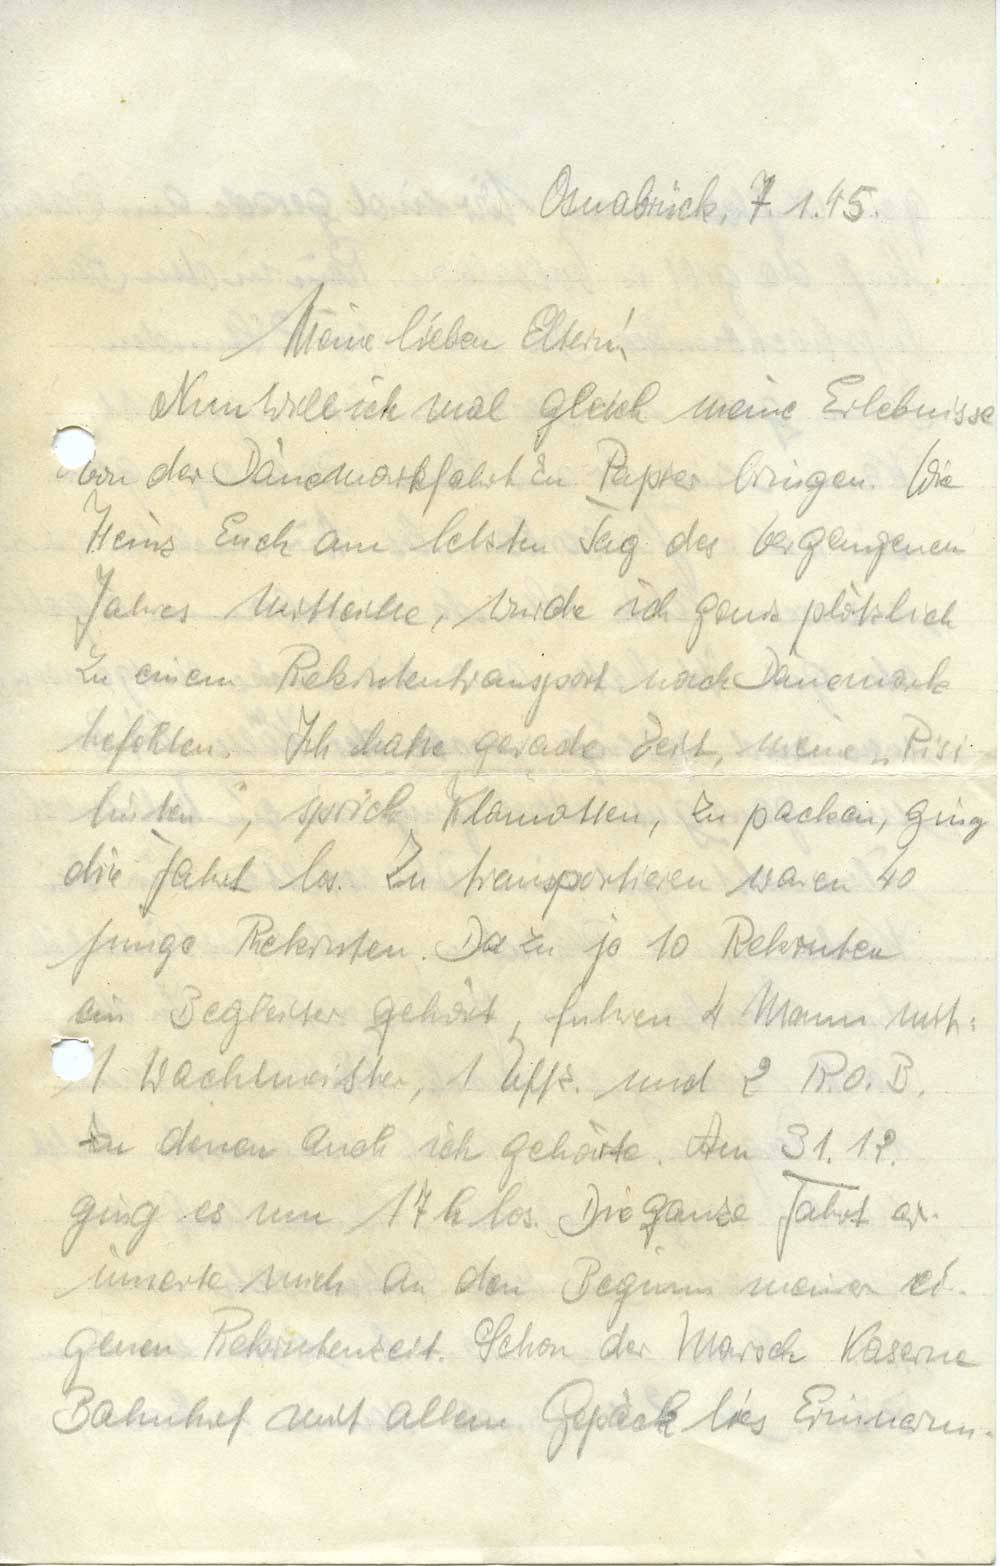 Osnabrück, 7.1.45.
Meine lieben Eltern!
Nun will ich mal gleich meine Erlebnisse
von der Dänemarkfahrt zu Papier bringen. Wie
Heinz Euch am letzten Tag des vergangenen
Jahres mitteilte, wurde ich ganz plötzlich
zu einem Rekrutentransport nach Dänemark
befohlen. Ich hatte gerade Zeit, meine
", sprich Klamotten, zu packen, ging
die Fahrt los. Zu transportieren waren 40
junge Rekruten. Da zu je 10 Rekruten
ein Begleiter gehört, fuhren 4 Mann mit:
1 Wachtmeister, 1 Uffz. und 2 R.O.B.
zu denen auch ich gehörte. Am 31.12.
ging es um 17 h los. Die ganze Fahrt er-
innerte mich an den Beginn meiner ei-
genen Rekrutenzeit. Schon der Marsch Kaserne
Bahnhof mit allem Gepäck lies Erinnerun-